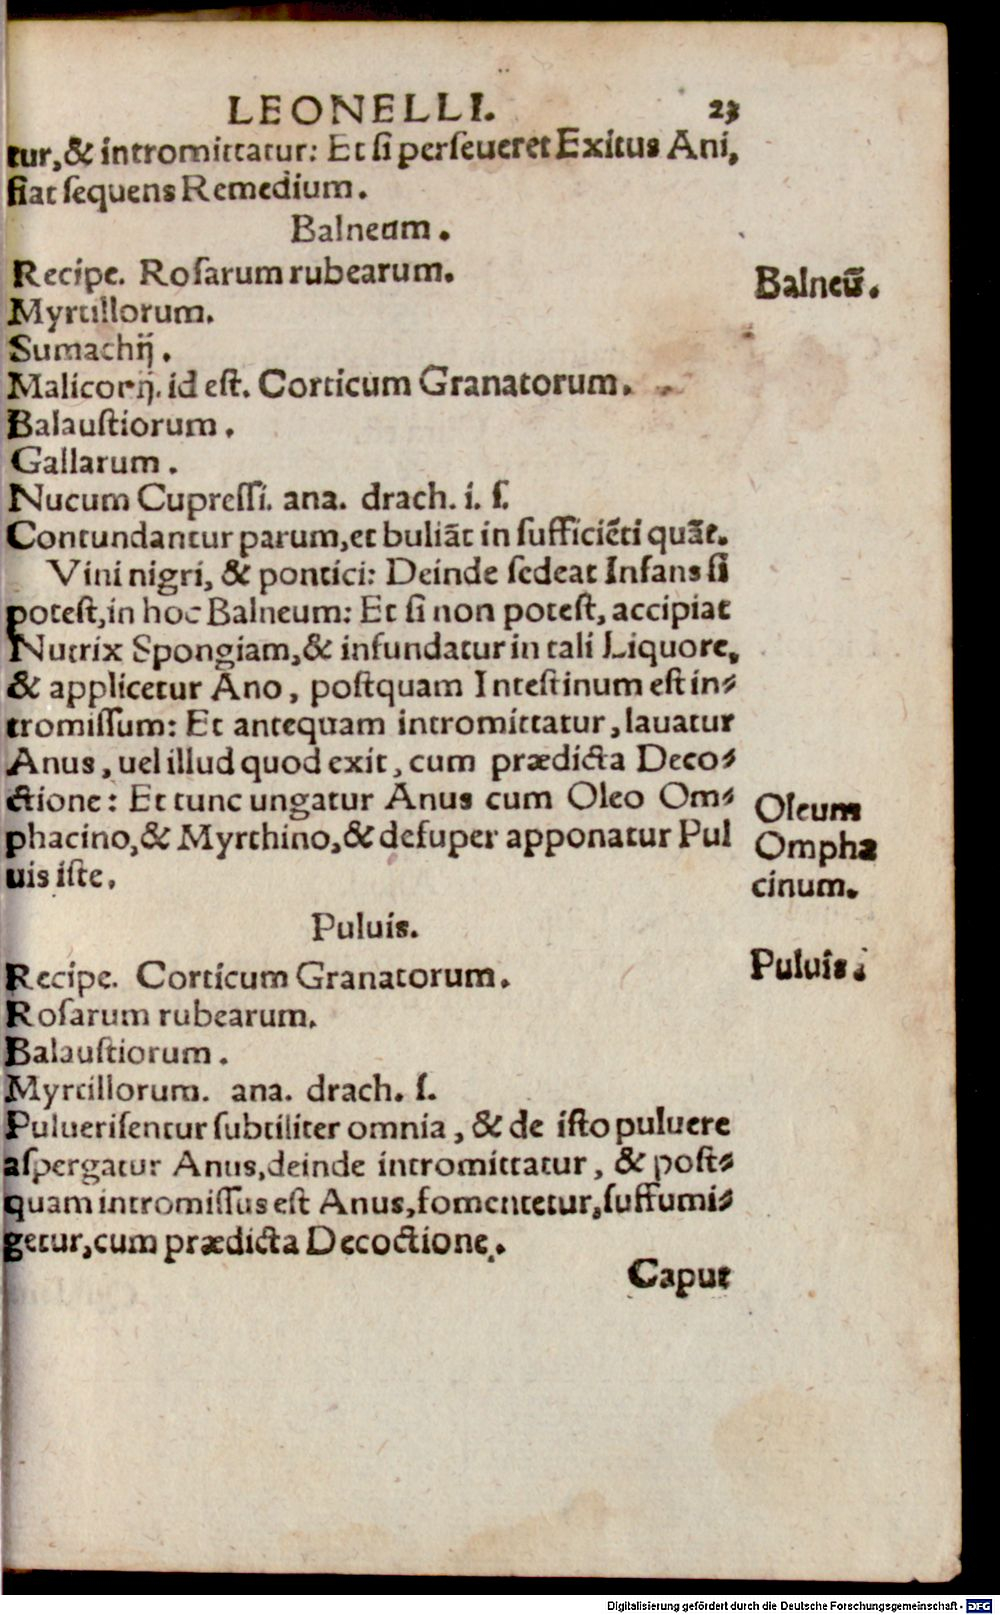 LEONELLI. 23
tur,& intromittatur: Et si perseueret Exitus Ani,
fiat sequens Remedium.
Balneum.
Recipe. Rosarum rubearum.
Balneũ.
Myrtillorum.
Sumachij.
Malicorij. id est. Corticum Granatorum.
Balaustiorum.
Gallarum.
Nucum Cupressi. ana. drach. i. s.
Contundantur parum,et buliãt in sufficiẽti quãt.
Vini nigri, & pontici: Deinde sedeat Infans si
potest,in hoc Balneum: Et si non potest, accipiat
Nutrix Spongiam,& infundatur in tali Liquore,
& applicetur Ano, postquam Intestinum est in⸗
tromissum: Et antequam intromittatur, lauatur
Anus, uel illud quod exit, cum prædicta Deco⸗
ctione: Et tunc ungatur Anus cum Oleo Om⸗
phacino,& Myrthino,& desuper apponatur Pul
uis iste.
Oleum
Ompha
cinum.
Puluis.
Puluis.
Recipe. Corticum Granatorum.
Rosarum rubearum.
Balaustiorum.
Myrtillorum. ana. drach. s.
Puluerisentur subtiliter omnia, & de isto puluere
aspergatur Anus,deinde intromittatur, & post⸗
quam intromissus est Anus,fomentetur,suffumi⸗
getur,cum prædicta Decoctione.
Caput
Digitalisierung gefördert durch die Deutsche Forschungsgemeinschaft - DFG